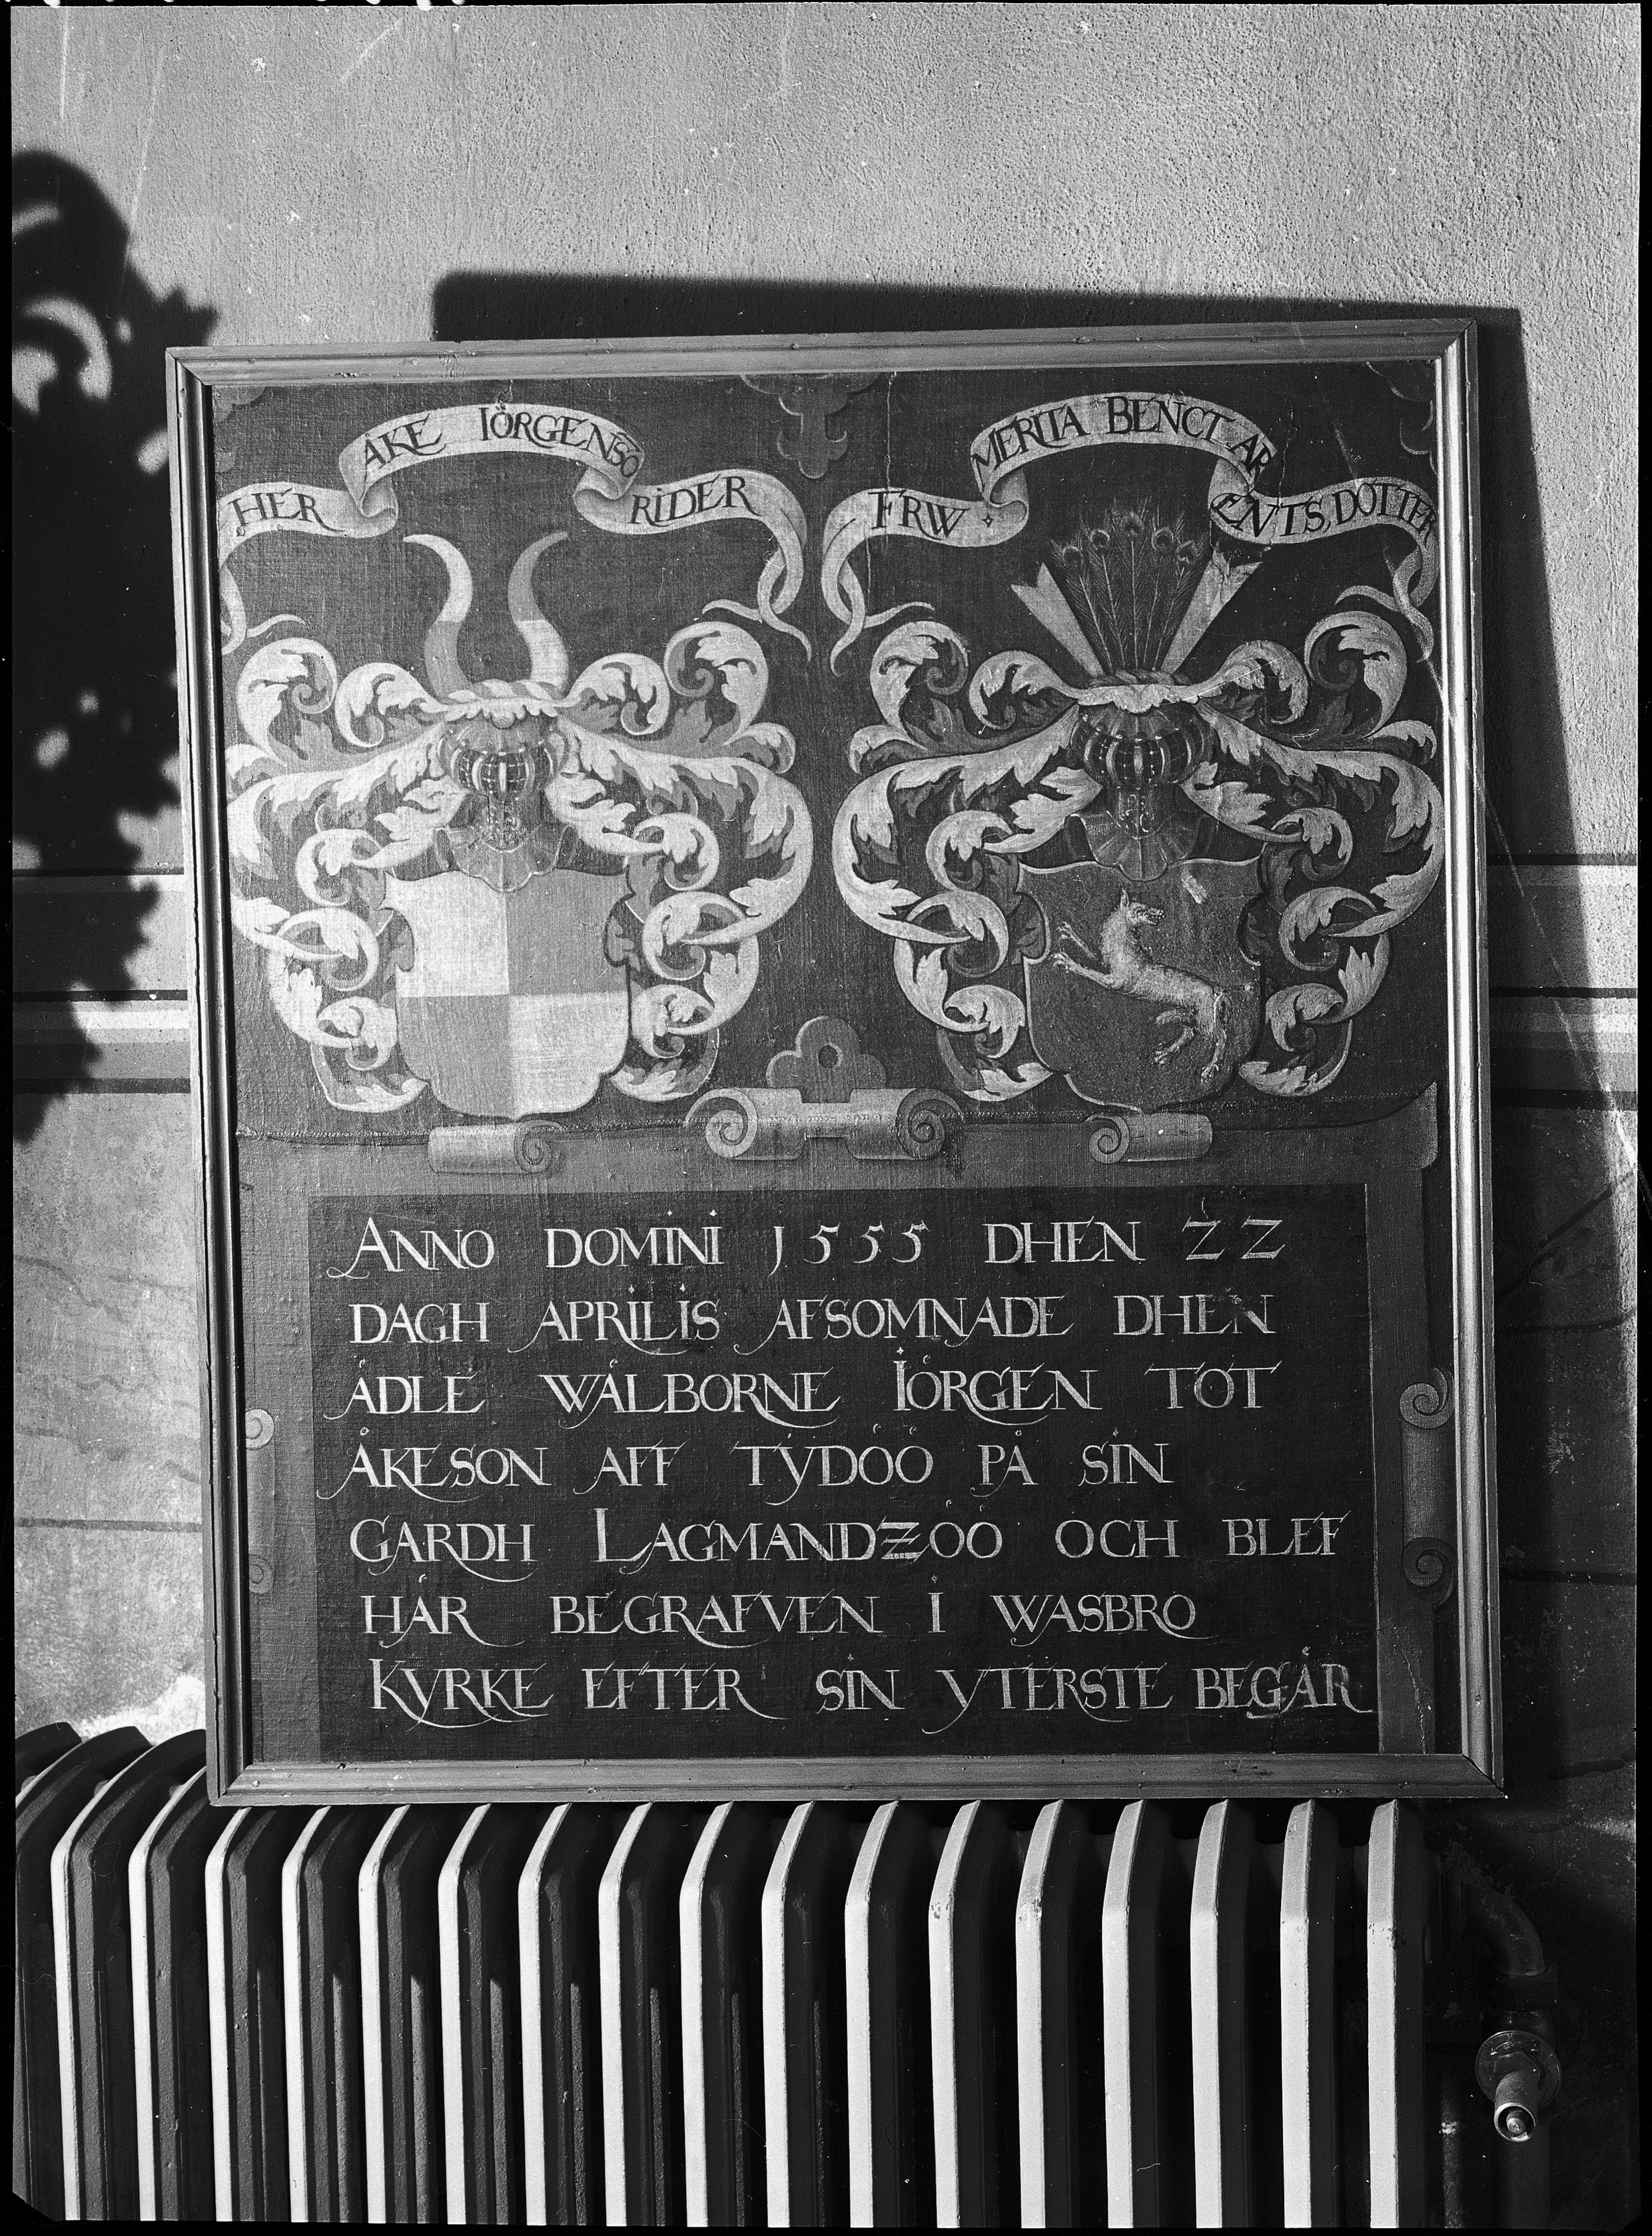 HER ÅKE IÖRGENSÖ RIDER
FRW MERITA BENCT AR ENTS, DOTTER
ANNO DOMINI 1555 DHEN ZZ
DAGH APRILIS AFSOMNADE DHEN
ÅDLE WÅLBORNE IÖRGEN TOT
ÅKESON AFF TYDÖÖ PÅ SIN
GARDH LAGMANDZÖÖ OCH BLEF
HÅR BEGRAFVEN I WASBRO
KYRKE EFTER SIN YTERSTE BEGÅR